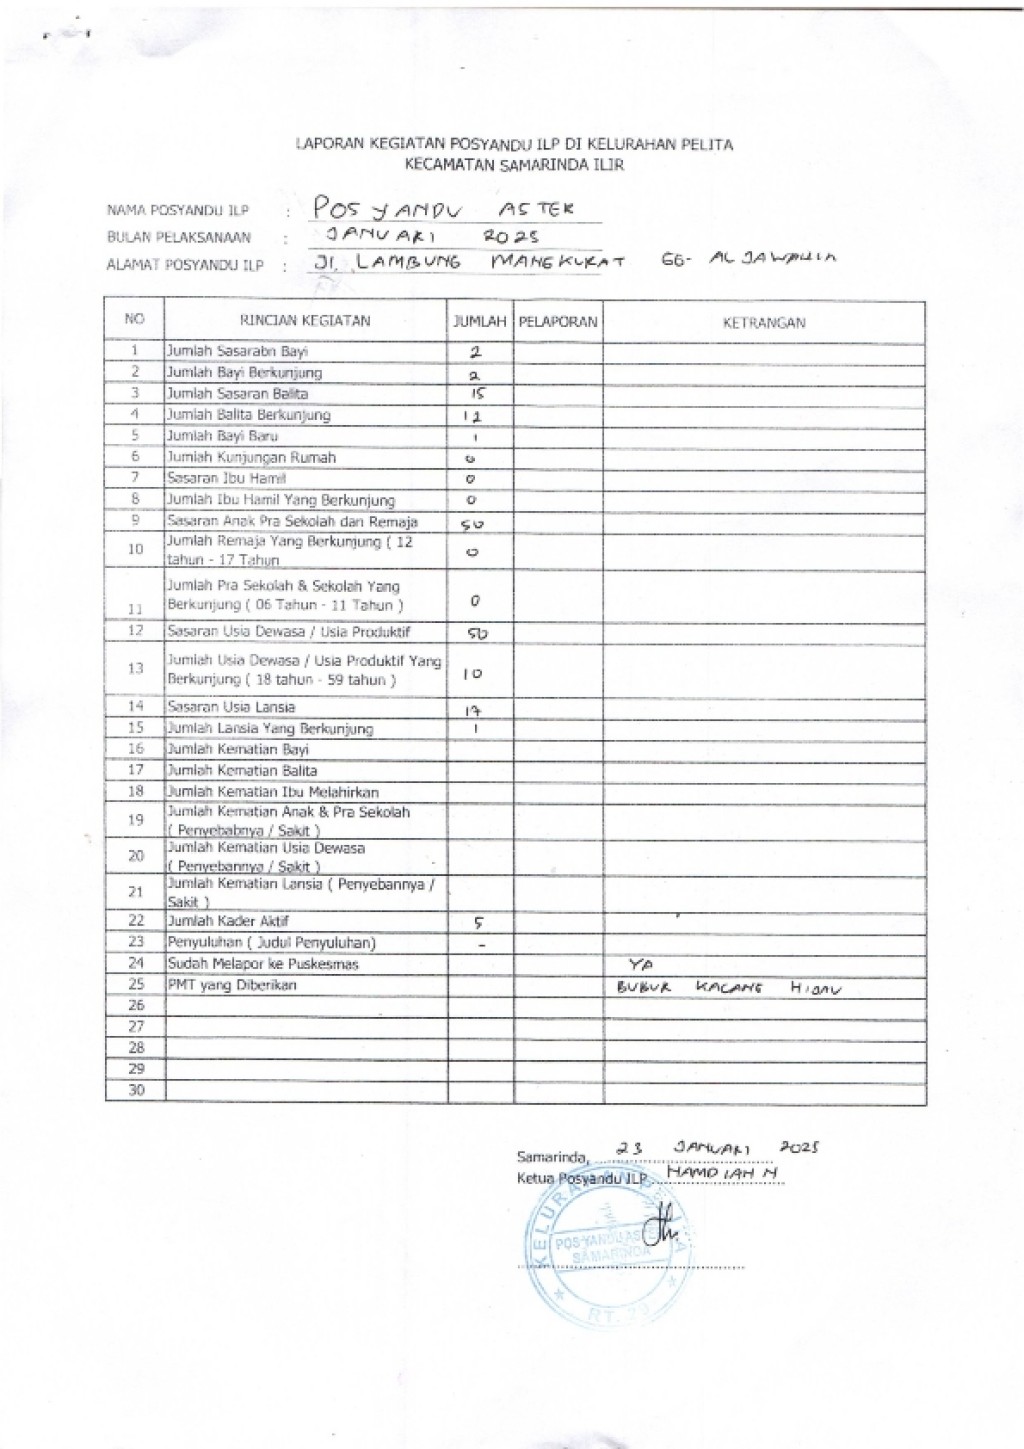 LAPORAN KEGIATAN POSYANDU ILP DI KELURAHAN PELITA
KECAMATAN SAMARINDA ILIR
NAMA POSYANDU ILP : POSYANDU ASTER
BULAN PELAKSANAAN : JANUARI 2025
ALAMAT POSYANDU ILP : Jl. LAMBUNG MANGKURAT GG-
NO RINCIAN KEGIATAN JUMLAH PELAPORAN KETRANGAN
1 Jumlah Sasarabn Bayi 2
2 Jumlah Bayi Berkunjung 2
3 Jumlah Sasaran Balita 15
4 Jumlah Balita Berkunjung 12
5 Jumlah Bayi Baru 1
6 Jumlah Kunjungan Rumah 0
7 Sasaran Ibu Hamil 0
8 Jumlah Ibu Hamil Yang Berkunjung 0
9 Sasaran Anak Pra Sekolah dan Remaja 50
10 Jumlah Remaja Yang Berkunjung ( 12
tahun - 17 Tahun 0
Jumlah Pra Sekolah & Sekolah Yang
11 Berkunjung ( 06 Tahun - 11 Tahun ) 0
12 Sasaran Usia Dewasa / Usia Produktif 50
13 Jumlah Usia Dewasa / Usia Produktif Yang
Berkunjung ( 18 tahun - 59 tahun ) 10
14 Sasaran Usia Lansia 17
15 Jumlah Lansia Yang Berkunjung 1
16 Jumlah Kematian Bayi
17 Jumlah Kematian Balita
18 Jumlah Kematian Ibu Melahirkan
19 Jumlah Kematian Anak & Pra Sekolah
( Penyebabnya / Sakit )
20 Jumlah Kematian Usia Dewasa
( Penyebannya / Sakit )
21 Jumlah Kematian Lansia ( Penyebannya /
Sakit )
22 Jumlah Kader Aktif 5
23 Penyuluhan ( Judul Penyuluhan) -
24 Sudah Melapor ke Puskesmas YA
25 PMT yang Diberikan BUBUR KACANG HIJAU
26
27
28
29
30
Samarinda, 23 JANUARI 2025
Ketua Posyandu ILP HAMDIAH N
KELURAHAN PELITA
POSYANDU
SAMARINDA
RT. 29